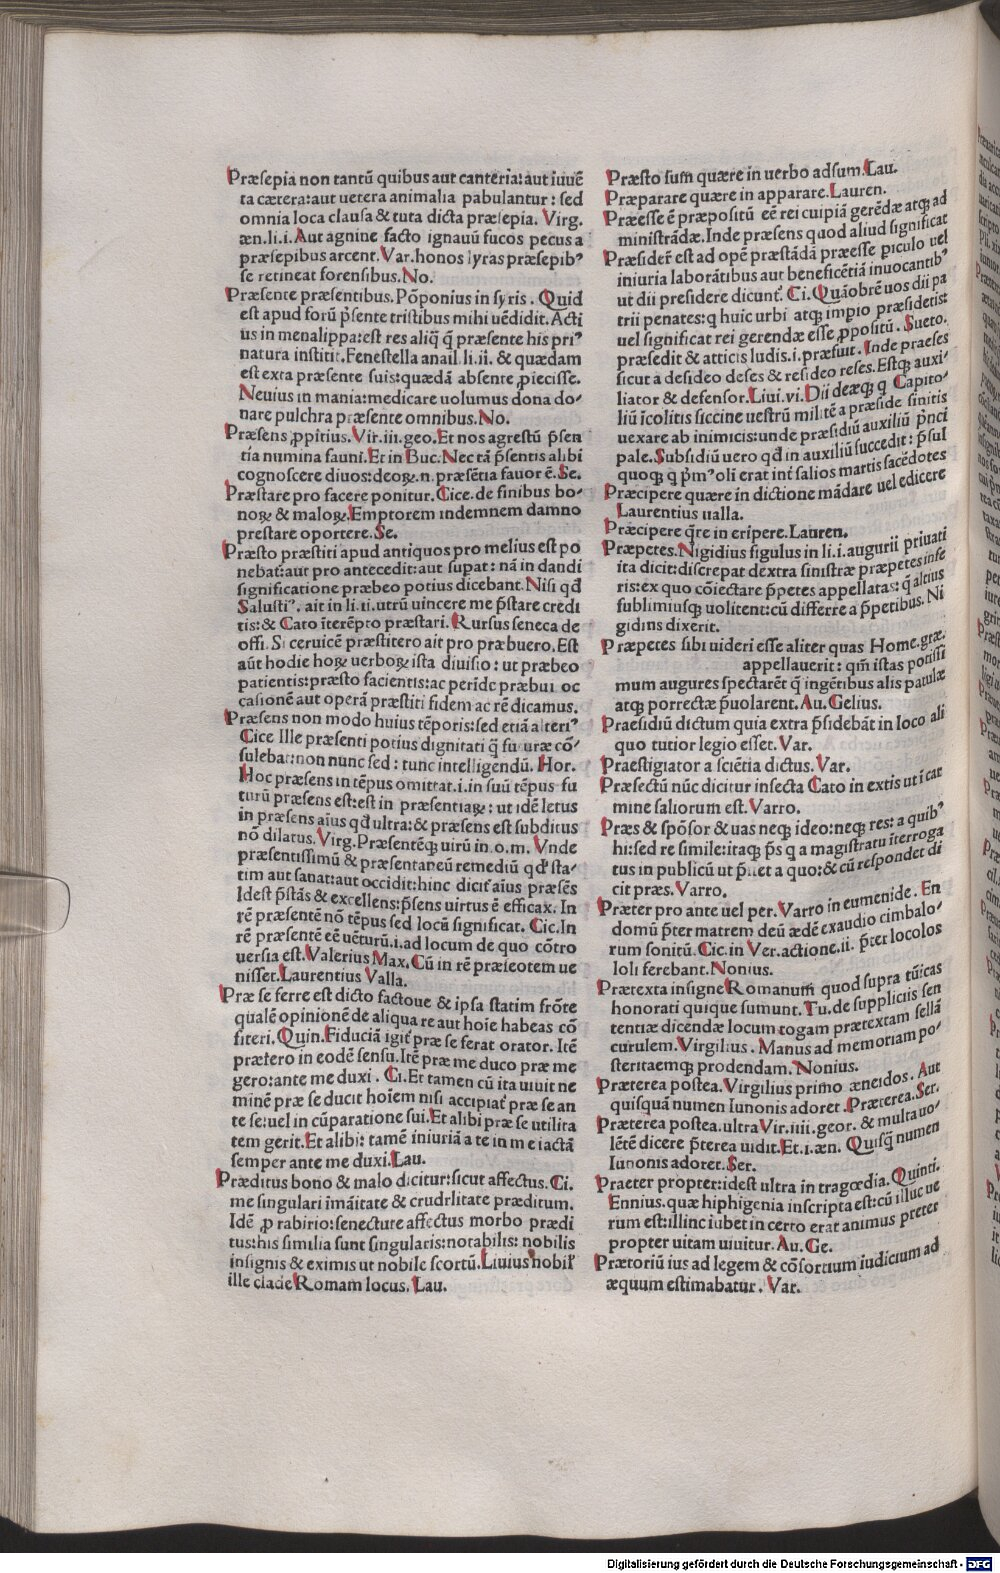 Præsepia non tantū quibus aut canteria: aut iuuē
ta cætera: aut uetera animalia pabulantur: sed
omnia loca clausa & tuta dicta præsepia. Virg.
æn. li. i. Aut agnine facto ignauū fucos pecus a
præsepibus arcent. Var. honos lyras præsepibꝰ
se retineat forensibus. No.
Præsente præsentibus. Pōponius in syris. Quid
est apud forū p̄sente tristibus mihi uēdidit. Acti
us in menalippa: est res aliq̄ q̄ præsente his priꝰ
natura institit. Fenestella anail li. ii. & quædam
est exta præsente suis: quædā absente ꝓiecisse.
Neuius in mania: medicare uolumus dona do-
nare pulchra præsente omnibus. No.
Præsens ꝓpitius. Vir. iii. geo. Et nos agrestū p̄sen
tia numina fauni. Et in Buc. Nec tā p̄sentis alibi
cognoscere diuos: deoꝝ. n. præsētia fauor ē. Se.
Præstare pro facere ponitur. Cice. de finibus bo-
noꝝ & maloꝝ. Emptorem indemnem damno
prestare oportere. Se.
Præsto præstiti apud antiquos pro melius est po
nebat: aut pro antecedit: aut supat: nā in dandi
significatione præbeo potius dicebant. Nisi qd̄
Salustiꝰ. ait in li. ii. utrū uincere me p̄stare credi
tis: & Cato īterēpto præstari. Rursus seneca de
offi. Si ceruicē præstitero ait pro præbuero. Est
aūt hodie hoꝝ uerboꝝ ista diuisio: ut præbeo
patientis: præsto facientis: ac perīde præbui oc
casionē aut operā præstiti fidem ac rē dicamus.
Præsens non modo huius tēporis: sed etiā alteriꝰ
Cice Ille præsenti potius dignitati q̄ futuræ cō-
sulebat: non nunc sed: tunc intelligendū. Hor.
Hoc præsens in tēpus omittat. i. in suū tēpus fu
turū præsens est: est in præsentiaꝝ: ut idē letus
in præsens aīus qd̄ ultra: & præsens est subditus
nō dilatus. Virg. Præsentēqꝫ uirū in. o. m. Vnde
præsentissimū & præsentaneū remediū qd̄ sta-
tim aut sanat: aut occidit: hinc dicit̄ aīus præsēs
Idest p̄stās & excellens: p̄sens uirtus ē efficax. In
rē præsentē nō tēpus sed locū significat. Cic. In
rē præsentē eē uēturū. i. ad locum de quo cōtro
uersia est. Valerius Max. Cū in rē præseotem ue
nisset. Laurentius Valla.
Præ se ferre est dicto factoue & ipsa statim frōte
qualē opinionē de aliqua re aut hoīe habeas cō
fiteri. Quin. Fiduciā igit̄ præ se ferat orator. Itē
prætero in eodē sensu. Itē præ me duco præ me
gero: ante me duxi. Ci. Et tamen cū ita uiuit ne
minē præ se ducit hoīem nisi accipiat̄ præ se an
te se: uel in cūparatione sui. Et alibi præ se utilita
tem gerit. Et alibi: tamē iniuriā a te in me iactā
semper ante me duxi. Lau.
Præditus bono & malo dicitur: sicut affectus. Ci.
me singulari īmāitate & crudrlitate præditum.
Idē ꝓ rabirio: senectute affectus morbo prædi
tus: his similia sunt singularis: notabilis: nobilis
insignis & eximis ut nobile scortū. Liuius nobil̄
ille clade Romam locus. Lau.
Præsto sum quære in uerbo adsum. Lau.
Præparare quære in apparare. Lauren.
Præesse ē præpositū eē rei cuipiā gerēdæ atqꝫ ad
ministrādæ. Inde præsens quod aliud significat
Præsider̄ est ad opē præstādā præesse piculo uel
iniuria laborātibus aut beneficētiā inuocantibꝰ
ut dii presidere dicunt̄. Ci. Quāobrē uos dii pa
trii penates: q huic urbi atqꝫ impio præsidetis:
uel significat rei gerendæ esse ꝓpositū. Sueto.
præsedit & atticis ludis. i. præfuit. Inde præses
sicut a desideo deses & resideo reses. Estqꝫ auxi-
liator & defensor. Liui. vi. Dii deæqꝫ q Capito-
liū īcolitis siccine uestrū militē a præside sinitis
uexare ab inimicis: unde præsidiū auxiliū p̄nci
pale. Subsidiū uero qd̄ in auxiliū succedit: p̄sul
quoqꝫ q p̄mꝰ oli erat int̄ salios martis sacēdotes
Præcipere quære in dictione mādare uel edicere
Laurentius ualla.
Præcipere q̄re in eripere. Lauren.
Præpetes. Nigidius figulus in li. i. augurii priuati
ita dicit: discrepat dextra sinistræ præpetes infe
ris: ex quo cōiectare p̄petes appellatas: q̄ altius
sublimiusqꝫ uolitent: cū differre a p̄petibus. Ni
gidius dixerit.
Præpetes sibi uideri esse aliter quas Home. græ.
appellauerit: qm̄ istas potissi
mum augures spectarēt q̄ ingētibus alis patulæ
atqꝫ porrectæ p̄uolarent. Au. Gelius.
Praesidiū dictum quia extra p̄sidebāt in loco ali
quo tutior legio esset. Var.
Praestigiator a sciētia dictus. Var.
Præsectū nūc dicitur insecta Cato in extis uti car
mine saliorum est. Varro.
Præs & spōsor & uas neqꝫ ideo: neqꝫ res: a quibꝰ
hi: sed re simile: itaqꝫ p̄s q a magistratu īterroga
tus in publicū ut p̄stet a quo: & cū respondet di
cit præs. Varro.
Præter pro ante uel per. Varro in eumenide. En
domū p̄ter matrem deū ædē exaudio cimbalo-
rum sonitū. Cic. in Ver. actione. ii. p̄ter locolos
loli ferebant. Nonius.
Prætexta insigne Romanum quod supra tūicas
honorati quique sumunt. Tu. de suppliciis sen
tentiæ dicendæ locum togam prætextam sellā
curulem. Virgilius. Manus ad memoriam po-
steritaemqꝫ prodendam. Nonius.
Præterea postea. Virgilius primo æneidos. Aut
quisquā numen Iunonis adoret. Præterea. Ser.
Præterea postea. ultra Vir. iiii. geor. & multa uo-
lētē dicere p̄terea uidit. Et. i. æn. Quisq̄ numen
Iunonis adoret. Ser.
Praeter propter: idest ultra in tragœdia. Quinti.
Ennius. quæ hiphigenia inscripta est: cū illuc ue
rum est: illinc iubet in certo erat animus preter
propter uitam uiuitur. Au. Ge.
Prætoriū ius ad legem & cōsortium iudicium ad
æquum estimabatur. Var.
Digitalisierung gefördert durch die Deutsche Forschungsgemeinschaft - DFG